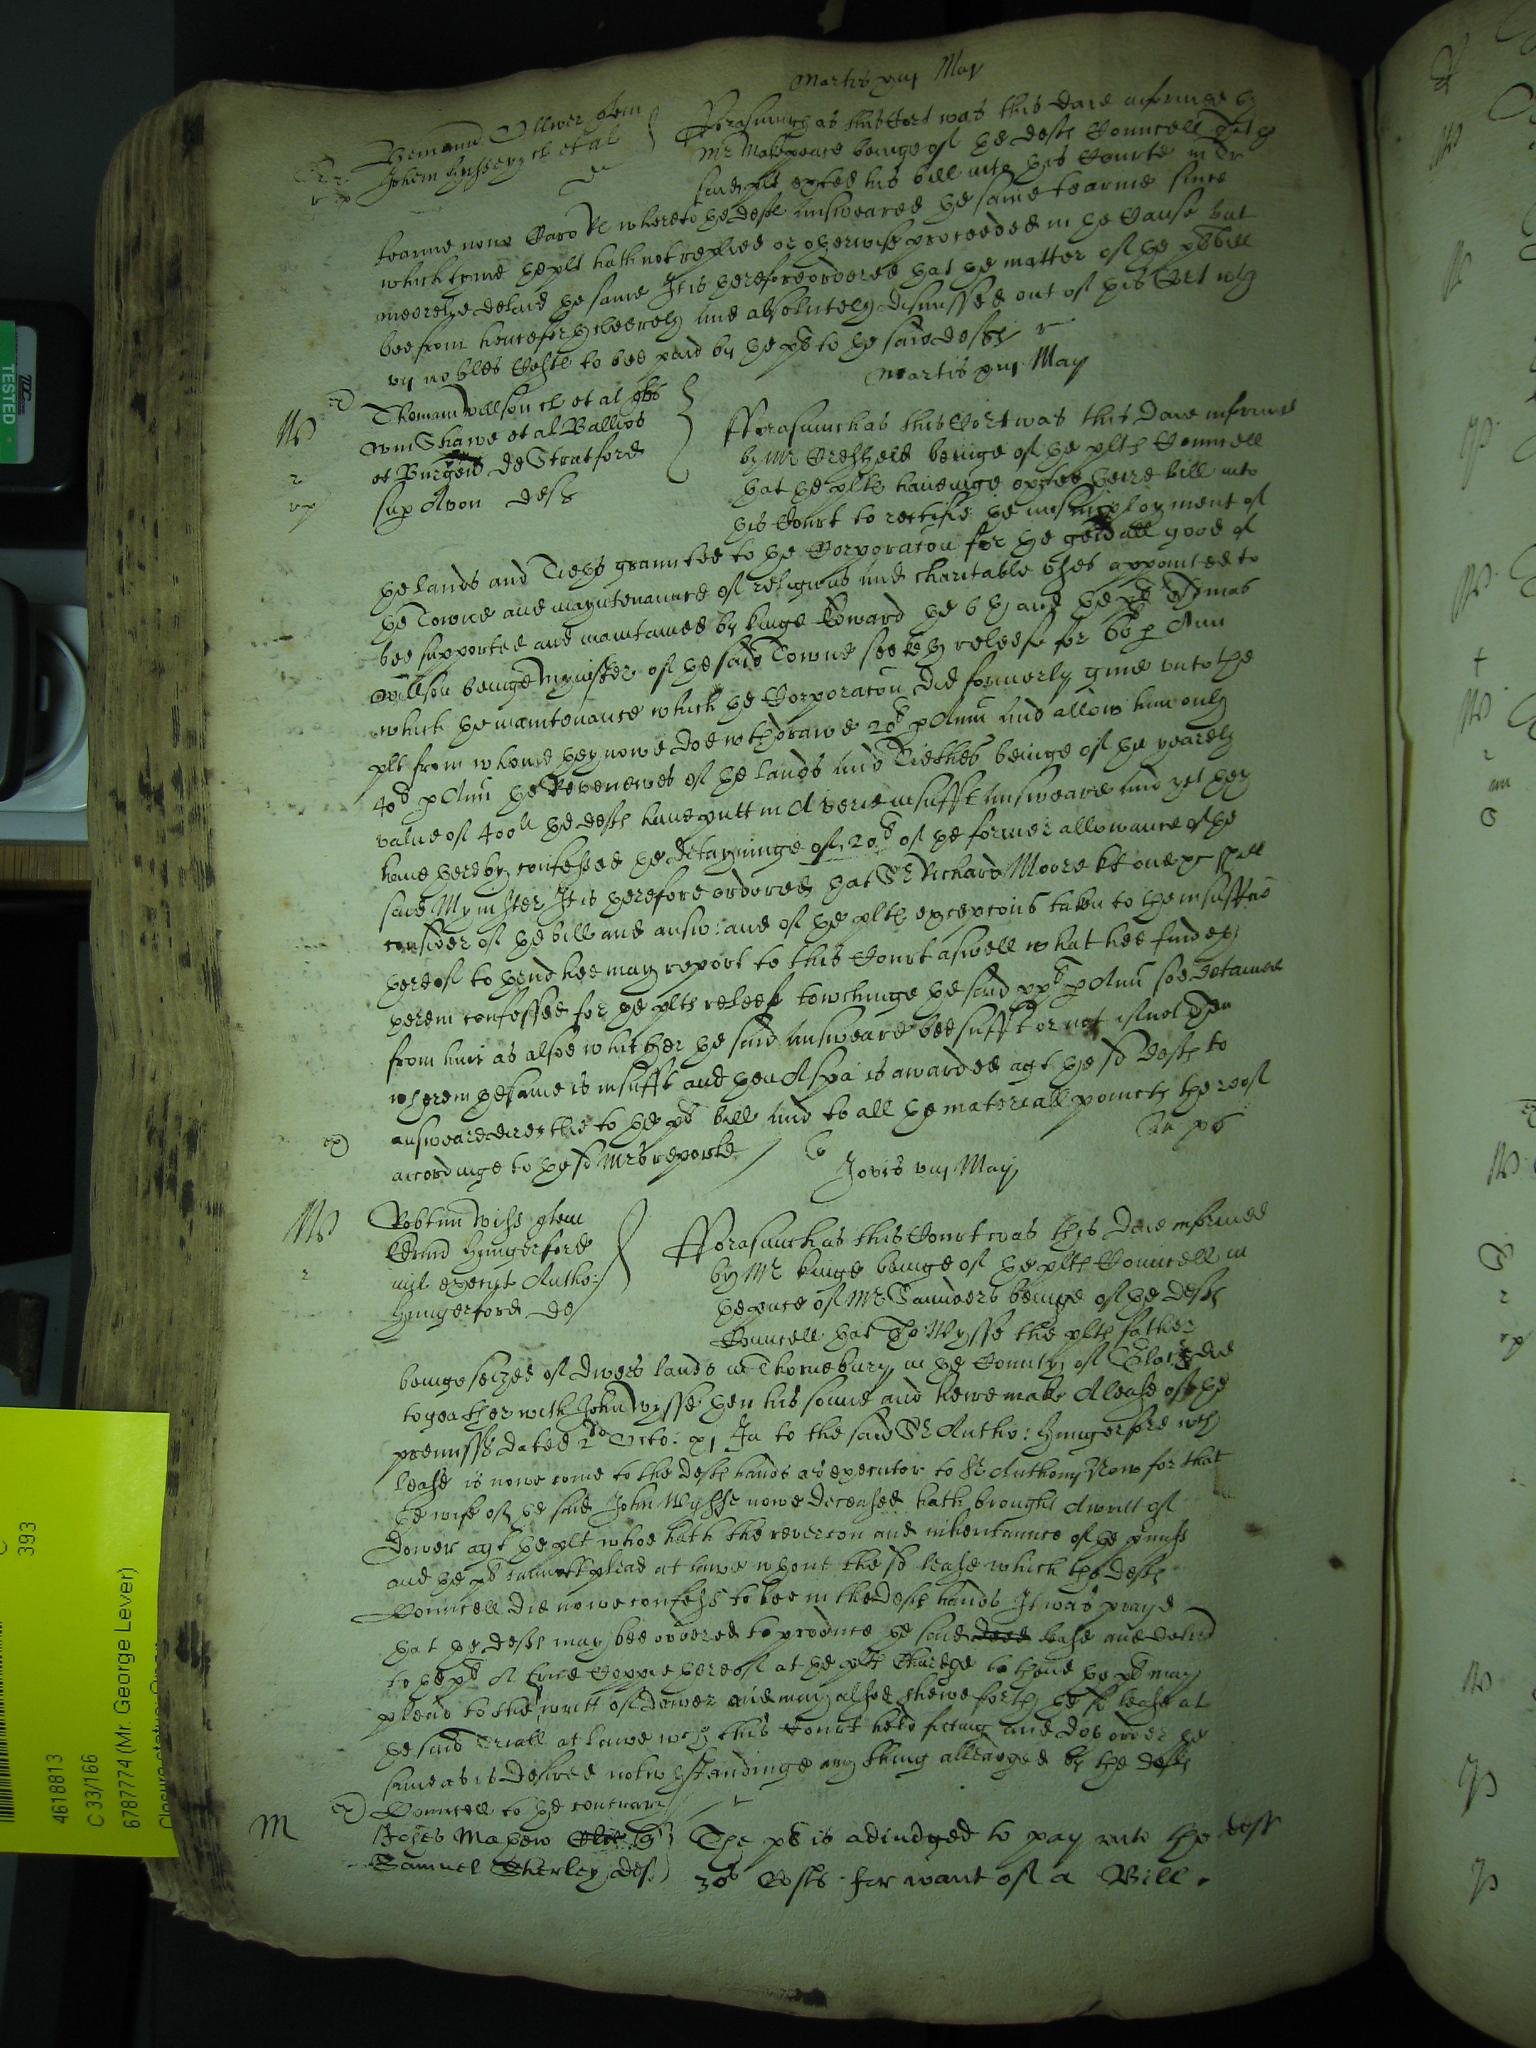 Martis xiij May
Forasmuch as this Cort was this daie informed by
Mr Makepeace beinge of the defts Councell that the
said plt exhted his bill into this Courte in Tr
tearme nono Caro Rs whereto the deft answeared the same tearme since
which tyme the plt hath not replied or otherwise proceeded in the Cause but
meerelye delaid the same It is therefore ordered that the matter of the pts bill
bee from henceforth cleerely and absolutely dismissed out of this Cort wth
vij nobles Costs to bee paid by the pt to the said defts
Martis xiij May
Thomam Willson cl et al
Wm Shawe et al Ballivos
et Burgens de Stratford
sup Avon defts
Forasmuch as this Cort was this daie informed
by Mr Cresheld beinge of the plts Councell
that the plts haveinge exhted theire bill into
this Court to rectifie the misimployment of
the lands and Tieths graunted to the Corporacon for the gen'all good of
the Towne and mayntenaunce of religious and charitable vses appointed to
bee supported and maintained by kinge Edward the 6th and the pt Thomas
Willson beinge Mynister of the said Towne seeketh releefe for 60l p Ann
which the maintenance which the Corporacon did formerly give vnto the
plt from whome they nowe doe wthdrawe 20l p Ann and allow him only
40l p Ann the Revenewes of the lands and Tiethes beinge of the yearely
value of 400li the defts have putt in a verie insufft answeare and yet they
have therby confessed the detayninge of 20l of the former allowance of the
said Mynister It is therefore ordered that Sr Richard Moore kt one &c shall
consider of the bill and answ: and of the plts excepcons taken to the insuffic
thereof to thend hee may report to this Court aswell what hee findeth
therein confessed for the plts releefe towchinge the said xxl p Ann soe detained
from him as alsoe whether the said answeare bee sufft or not if not then
wherein the same is insufft and then A spa is awarded agt the sd defts to
answeare directlie to the pts bill and to all the materiall points thereof
accordinge to the sd Mrs reporte
Jovis xv May
Edmund Hungerford
mil execut Antho:
Hungerford def
Forasmuch as this Court was this daie informed
by Mr kinge beinge of the plts Councell in
the pnce of Mr Saunders beinge of the defts
Councell that Tho Wysse the plts father
beinge seized of divers lands in Thornebury in the County of Glouc did
togeather with John Wysse then his sonne and heire make A lease of the
premisss dated 2do Octo: xj Ja to the said Sr Antho: Hungerford wch
lease is nowe come to the defts hands as executor to Sr Anthony Now for that
the wife of the said John Wysse nowe deceased hath brought A writt of
Dower agt the plt whoe hath the revercon and inheritannce of the p'misss
and the pt cannott plead at lawe wthout the sd lease which the defts
Councell did nowe confess to bee in the defts hands It was prayed
that the deft may bee ordered to produce the said deed lease and deliver
to the pt A true Coppie thereof at the plts Chardge to thend the pt may
plead to the writt of Dower and may alsoe shewe forth the sd lease at
the said triall at lawe wch this Court held fitting and doe order the
same as is desired notwthstandinge any thing alleadged by the defts
Councell to the contrary
Johes Mapew
Samuel Sherley def
The pt is adiudged to pay vnto the deft
30s Costs for want of a Bill.
TESTED
393
4618813
C 33/166
6787774 (Mr. George Lever)